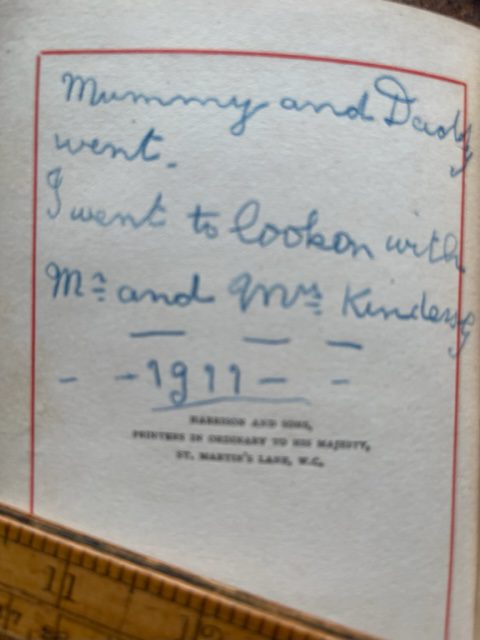 Mummy and Dady
went.
I went to lookon with
Mr and Mrs Kindersly
- - 1911 - -
HARRISON AND SONS,
PRINTERS IN ORDINARY TO HIS MAJESTY,
ST. MARTIN'S LANE, W.C.
11